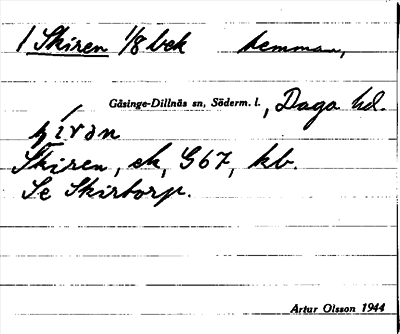 1 Skiren 1/8 bek hemman,
Gåsinge-Dillnäs sn, Söderm. l., Daga hd.
Skiren, ek, G67, kb.
Se Skirtorp.
Artur Olsson 1944